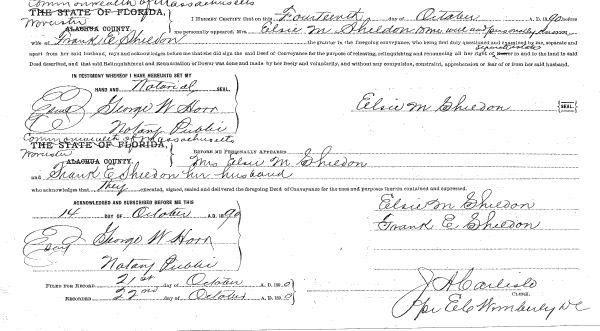 Commonwealth of Massachusetts
THE STATE OF FLORIDA,
Worcester
ALACHUA COUNTY.
I HEREBY CERTIFY that on this Fourteenth day of October A. D. 1890 before
me personally appeared Mrs. Elsie M Shieldon to me well and personally known
wife of Frank E. Shieldon the grantor in the foregoing conveyance, who being by me first duly questioned and examined by me, separate and
apart from her said husband, says and acknowledges before me that she did sign the said Deed of Conveyance for the purpose of releasing, relinquishing and renouncing all her right of separate estate dower in and to the land in said
Deed described, and that said Relinquishment and Renunciation of Dower was done and made by her freely and voluntarily, and without any compulsion, constraint, apprehension or fear of or from her said husband.
IN TESTIMONY WHEREOF I HAVE HEREUNTO SET MY
HAND AND Notarial SEAL.
Seal George W Horr
Notary Public
Elsie M Shieldon [SEAL.]
Commonwealth of Massachusetts
THE STATE OF FLORIDA,
Worcester
ALACHUA COUNTY.
BEFORE ME PERSONALLY APPEARED
Mrs Elsie M Shieldon
and Frank E Shieldon her husband
who acknowledges that they executed, signed, sealed and delivered the foregoing Deed of Conveyance for the uses and purposes therein contained and expressed.
ACKNOWLEDGED AND SUBSCRIBED BEFORE ME THIS
14 DAY OF October A. D. 1890
Seal George W Horr
Notary Public
Elsie M Shieldon
Frank E Shieldon
FILED FOR RECORD 21st day of October A. D. 1890
RECORDED 22nd day of October A. D. 1890
J A Carlisle
CLERK.
Per E C Wimberly DC